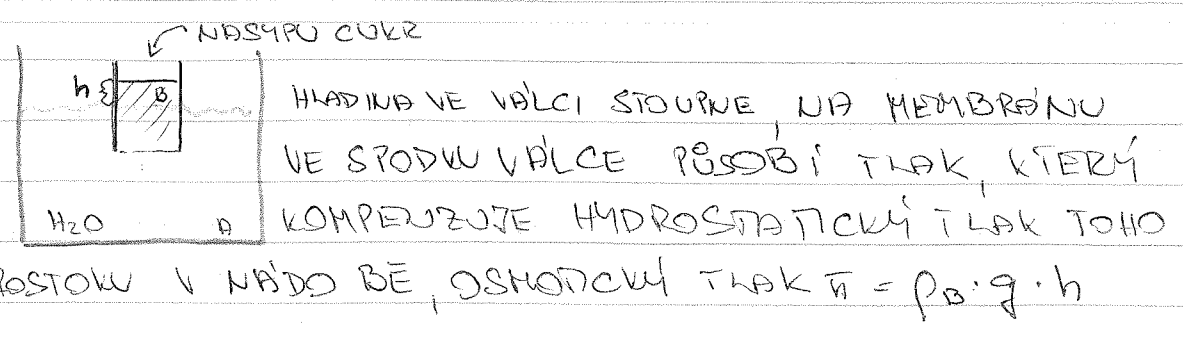 NASYPU CUKR
h B
HLADINA VE VÁLCI STOUPNE, NA MEMBRÁNU
VE SPODKU VÁLCE PŮSOBÍ TLAK, KTERÝ
H2O A KOMPENZUJE HYDROSTATICKÝ TLAK TOHO
ROSTOKU V NÁDOBĚ, OSMOTICKÝ TLAK π = ρB · g · h